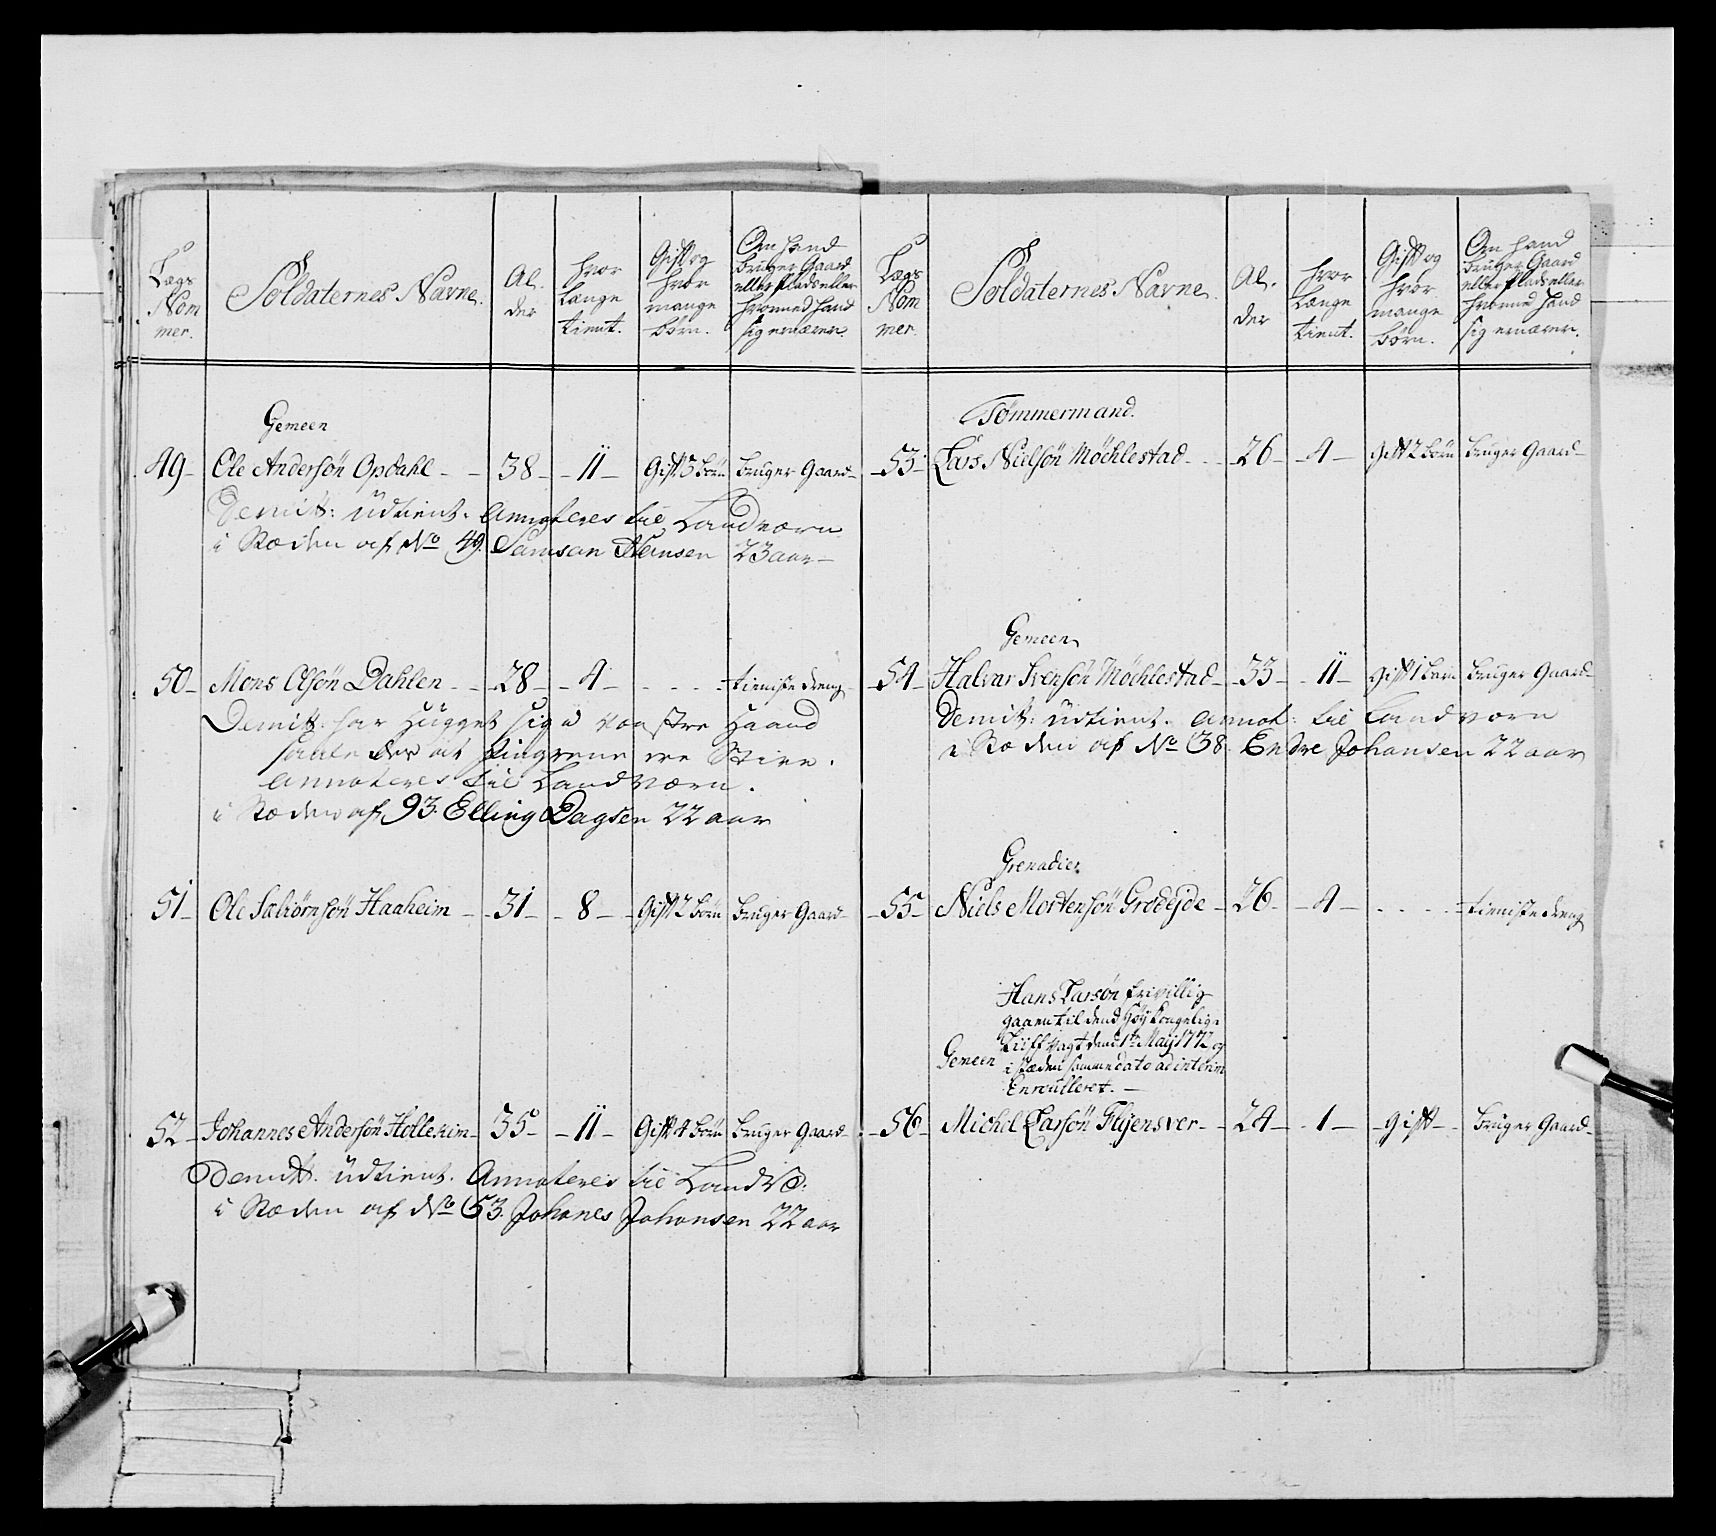 Lægs
Nom
mer.
Soldaternes Navne.
Al.
der
hvor
længe
tient.
Gift og
hvor
mange
børn.
Om hand
bruger Gaard
eller plads eller
hvormed hand
sig ernærer.
Gemeen
49 Ole Andersøn Opdahl 38 11 Gift 3 børn bruger Gaard
Demit: udtient. Annoteres til Landværn
i Stæden af No 49. Samson Hansen 23 aar
50 Mons Olsøn Dahlen 28 4 tieniste dreng
Demitt: har hugget sig i venstre Haand
saaledes at fingrene ere Stive.
Annoteres til Landværn.
i Stæden af 93. Elling Dagsen 22 aar
51 Ole Sebiørnsøn Haaheim 31 8 Gift 2 børn bruger Gaard
52 Johannes Andersøn Hollekim 35 11 Gift 4 børn bruger Gaard
Demitt. udtient. Annoteres til Landv:
i Stæden af No 63. Johanes Johansen 22 aar
Lægs
Nom
mer.
Soldaternes Navne.
Al.
der
hvor
længe
tient.
Gift og
hvor
mange
børn.
Om hand
bruger Gaard
eller plads eller
hvormed hand
sig ernærer.
Tømmermand.
53 Lars Nielsøn Møchlestad 26 4 gift 2 børn bruger Gaard
Gemeen
54 Halvar Svensøn Møchlestad 33 11 gift 1 barn bruger Gaard
Demit: udtient. Annot: til Landværn
i Stæden af No 38. Endre Johansen 22 aar
Grenadier
55 Niels Mortensøn Grødejde 26 4 tieniste dreng
Hans Larsøn frivillig
gaaen til dend høy Kongelige
Liiff vagt dend 1te Maij 1772 og
Gemeen i stæden samme dato ad interim
Enroulleret.
56 Michel Larsøn Fliensver 24 1 gift bruger Gaard